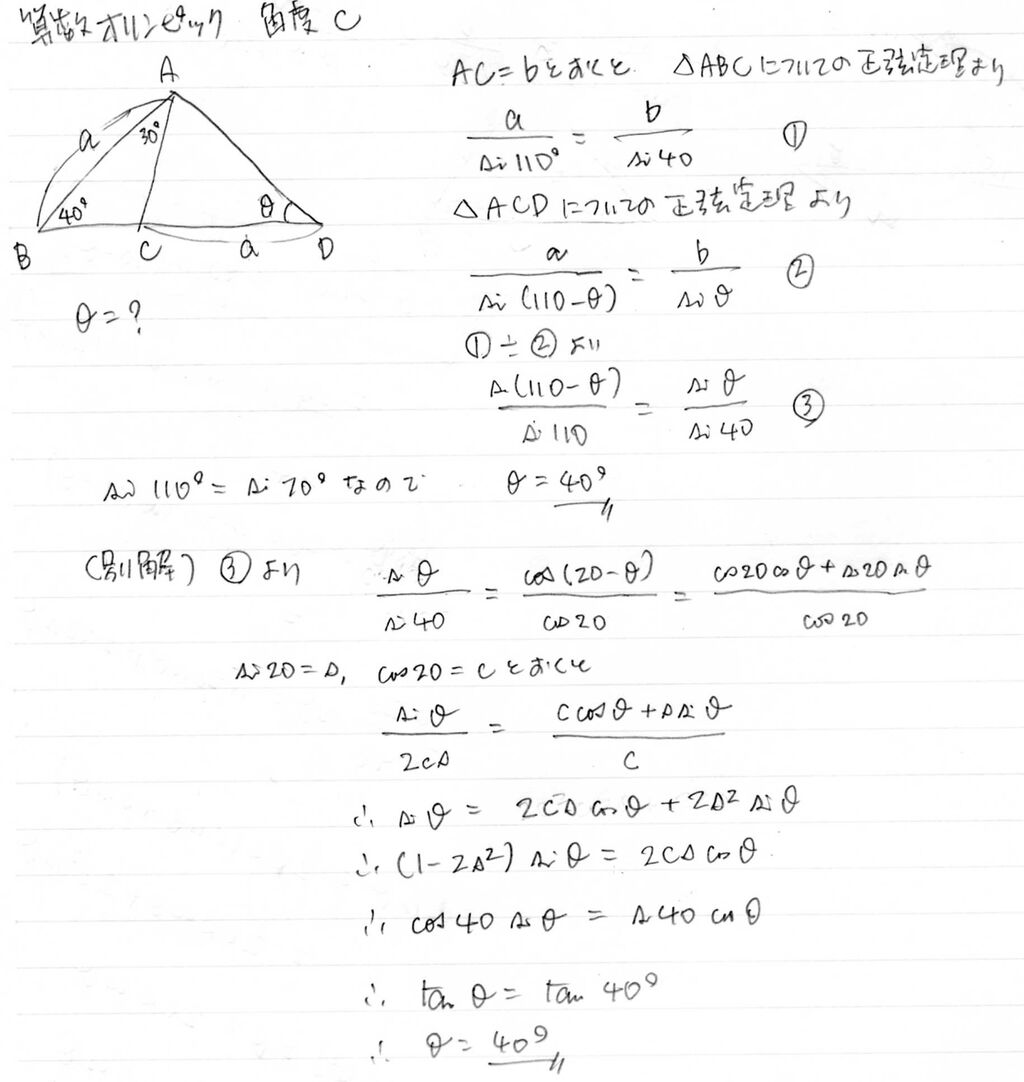 算数オリンピック 角度 C
A
a
30°
40°
θ
B
C
a
D
θ = ?
AC = bとおくと △ABCについての正弦定理より
a / sin 110° = b / sin 40 ①
△ACDについての正弦定理より
a / sin (110-θ) = b / sin θ ②
① ÷ ② より
sin (110-θ) / sin 110 = sin θ / sin 40 ③
sin 110° = sin 70° なので θ = 40°
(別解) ③ より sin θ / sin 40 = cos (20-θ) / cos 20 = cos 20 cos θ + sin 20 sin θ / cos 20
sin 20 = s, cos 20 = c とおくと
sin θ / 2cs = c cos θ + s sin θ / c
∴ sin θ = 2cs cos θ + 2s² sin θ
∴ (1-2s²) sin θ = 2cs cos θ
∴ cos 40 sin θ = sin 40 cos θ
∴ tan θ = tan 40°
∴ θ = 40°